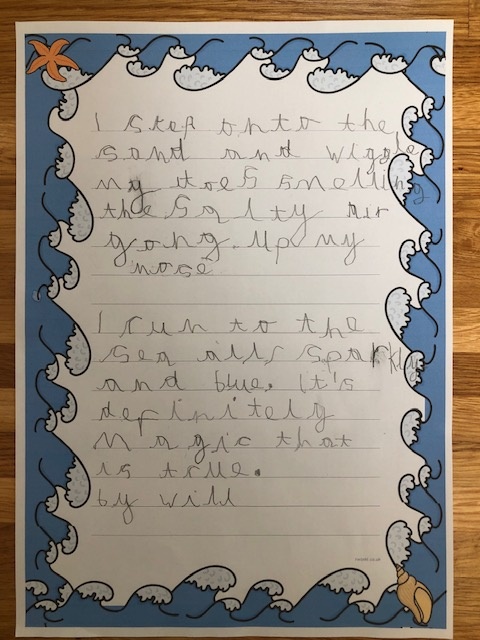 I step onto the
sand and wiggle
my toes smelling
the salty air
gong up my
nose
I run to the
sea all sparkly
and blue. It's
definitely
magic that
is true.
by will